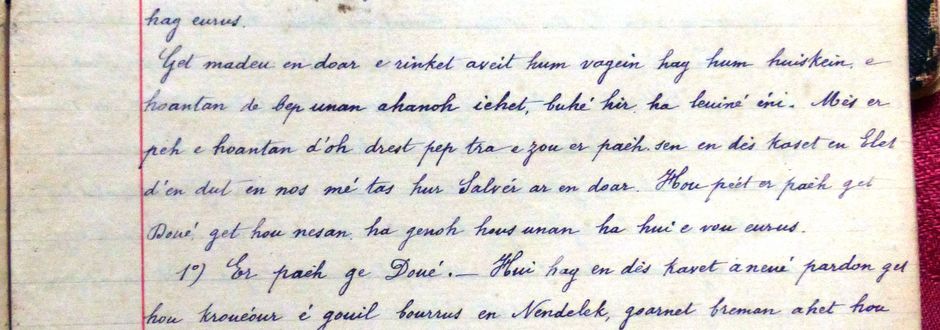 hag eurus.
Get madeu en doar e rinket aveit hum vagein hag hum huiskein, e
hoantan de bep unan ahanoh iehet, buhé hir, ha leuiné éni. Mès er
peh e hoantan d'oh drest pep tra e zou er paéh. sen en dès kaset en Elet
d'en dut en nos mé tas hur Salvér ar en doar. Hou péet er paéh get
Doué, get hou nesan, ha genoh hous unan ha hui e vou eurus.
1°) Er paéh ge Doué. — Hui hag en dès kavet a nevé pardon get
hou krouéour é gouil bourrus en Nendelek, goarnet breman ahet hou